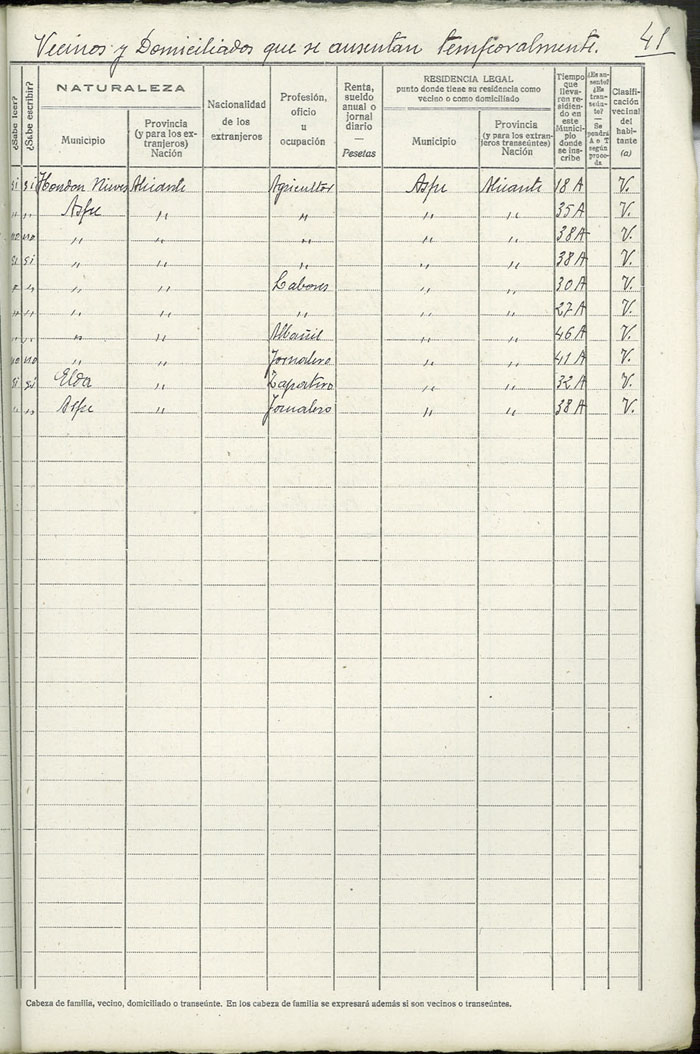 Vecinos y Domiciliados que se ausentan temporalmente. 41
¿Sabe leer?
¿Sabe escribir?
NATURALEZA
Municipio
Provincia
(y para los ex-
tranjeros)
Nación
Nacionalidad
de los
extranjeros
Profesión,
oficio
u
ocupación
Renta,
sueldo
anual o
jornal
diario
—
Pesetas
RESIDENCIA LEGAL
punto donde tiene su residencia como
vecino o como domiciliado
Municipio
Provincia
(y para los extran-
jeros transeúntes)
Nación
Tiempo
que
lleva-
ren re-
sidien-
do en
este
Munici-
pio
donde
se ins-
cribe
¿Es au-
sente?
¿Es
tran-
seún-
te?
—
Se
pondrá
A o T
según
proce-
da
Clasifi-
cación
vecinal
del
habi-
tante
(a)
si si Hondon Nieves Alicante Agricultor Aspe Alicante 18 A V.
" " Aspe " " " " 35 A V.
no no " " " " " 38 A V.
si si " " " " " 38 A V.
" " " " Labores " " 30 A V.
" " " " " " " 27 A V.
" " " " Albañil " " 46 A V.
no no " " Jornalero " " 41 A V.
si si Elda " Zapatero " " 32 A V.
" " Aspe " Jornalero " " 38 A V.
Cabeza de familia, vecino, domiciliado o transeúnte. En los cabeza de familia se expresará además si son vecinos o transeúntes.